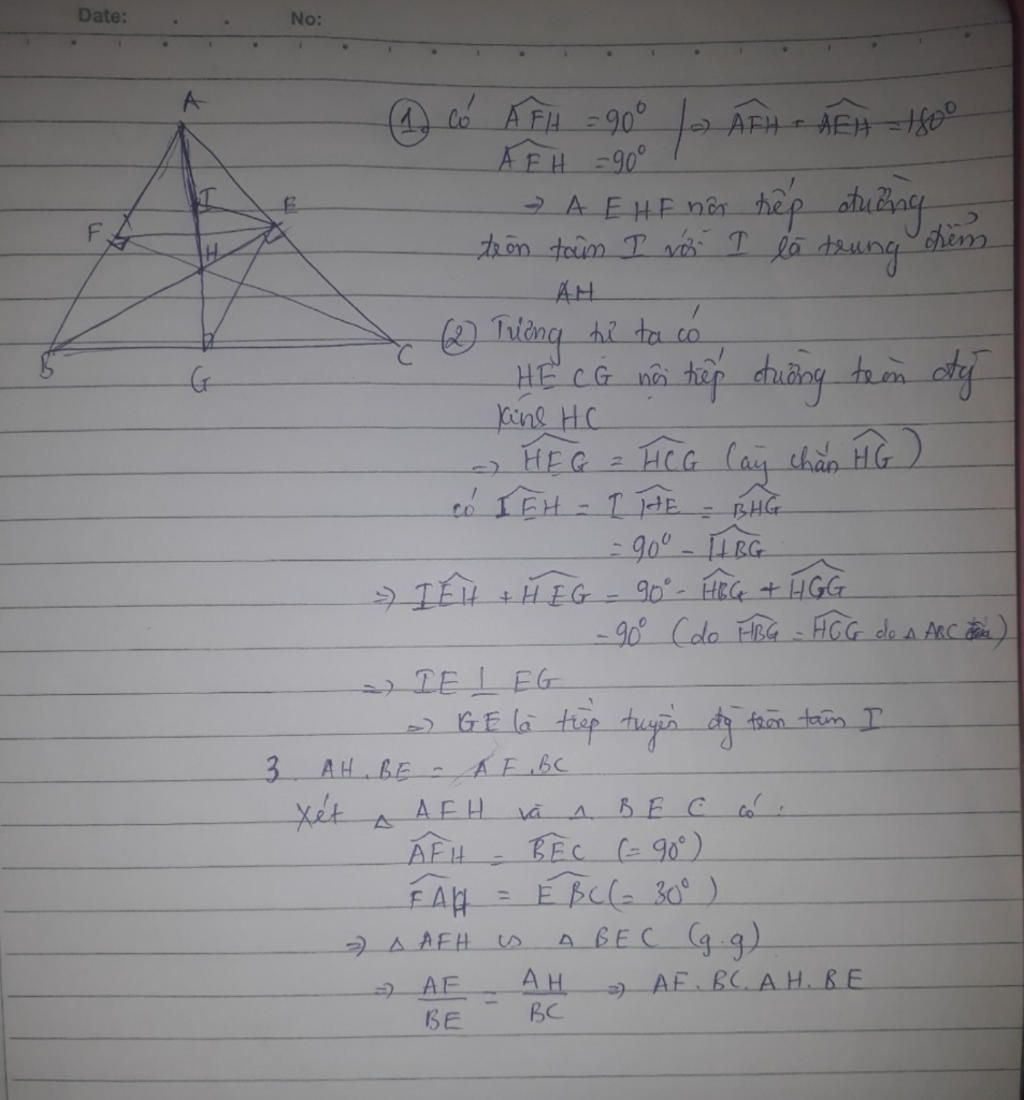 Date: . . No:
A
F
I
E
H
B
G
C
① Có AFH = 90° | => AFH + AEH = 180°
AEH = 90°
-> A E H F nội tiếp đường
tròn tâm I với I là trung điểm
AH
② Tương tự ta có
HECG nội tiếp đường tròn đg
kính HC
=> HEG = HCG (cùng chắn HG)
có IEH = IHE = BHG
= 90° - HBG
=> IEH + HEG = 90° - HBG + HCG
= 90° (do HBG = HCG do △ ABC)
=> IE ⊥ EG
=> GE là tiếp tuyến đg tròn tâm I
3. AH.BE = AF.BC
Xét △ AFH và △ BEC có:
AFH = BEC (= 90°)
FAH = EBC (= 30°)
=> △ AFH ∽ △ BEC (g.g)
=> AF/BE = AH/BC => AF.BC.AH.BE